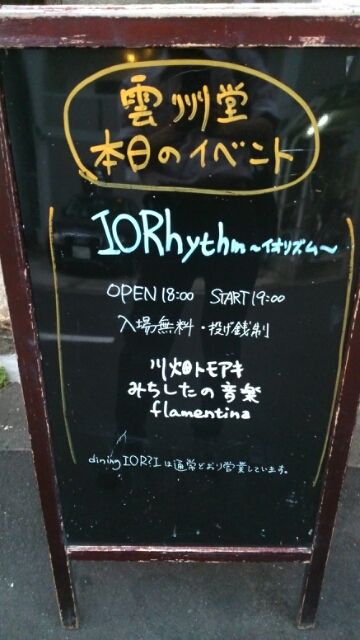 雲州堂
本日のイベント
IORhythm~イオリズム~
OPEN 18:00 START 19:00
入場無料・投げ銭制
川畑トモアキ
みちしたの音楽
flamentina
dining IOR?Iは通常どおり営業しています。